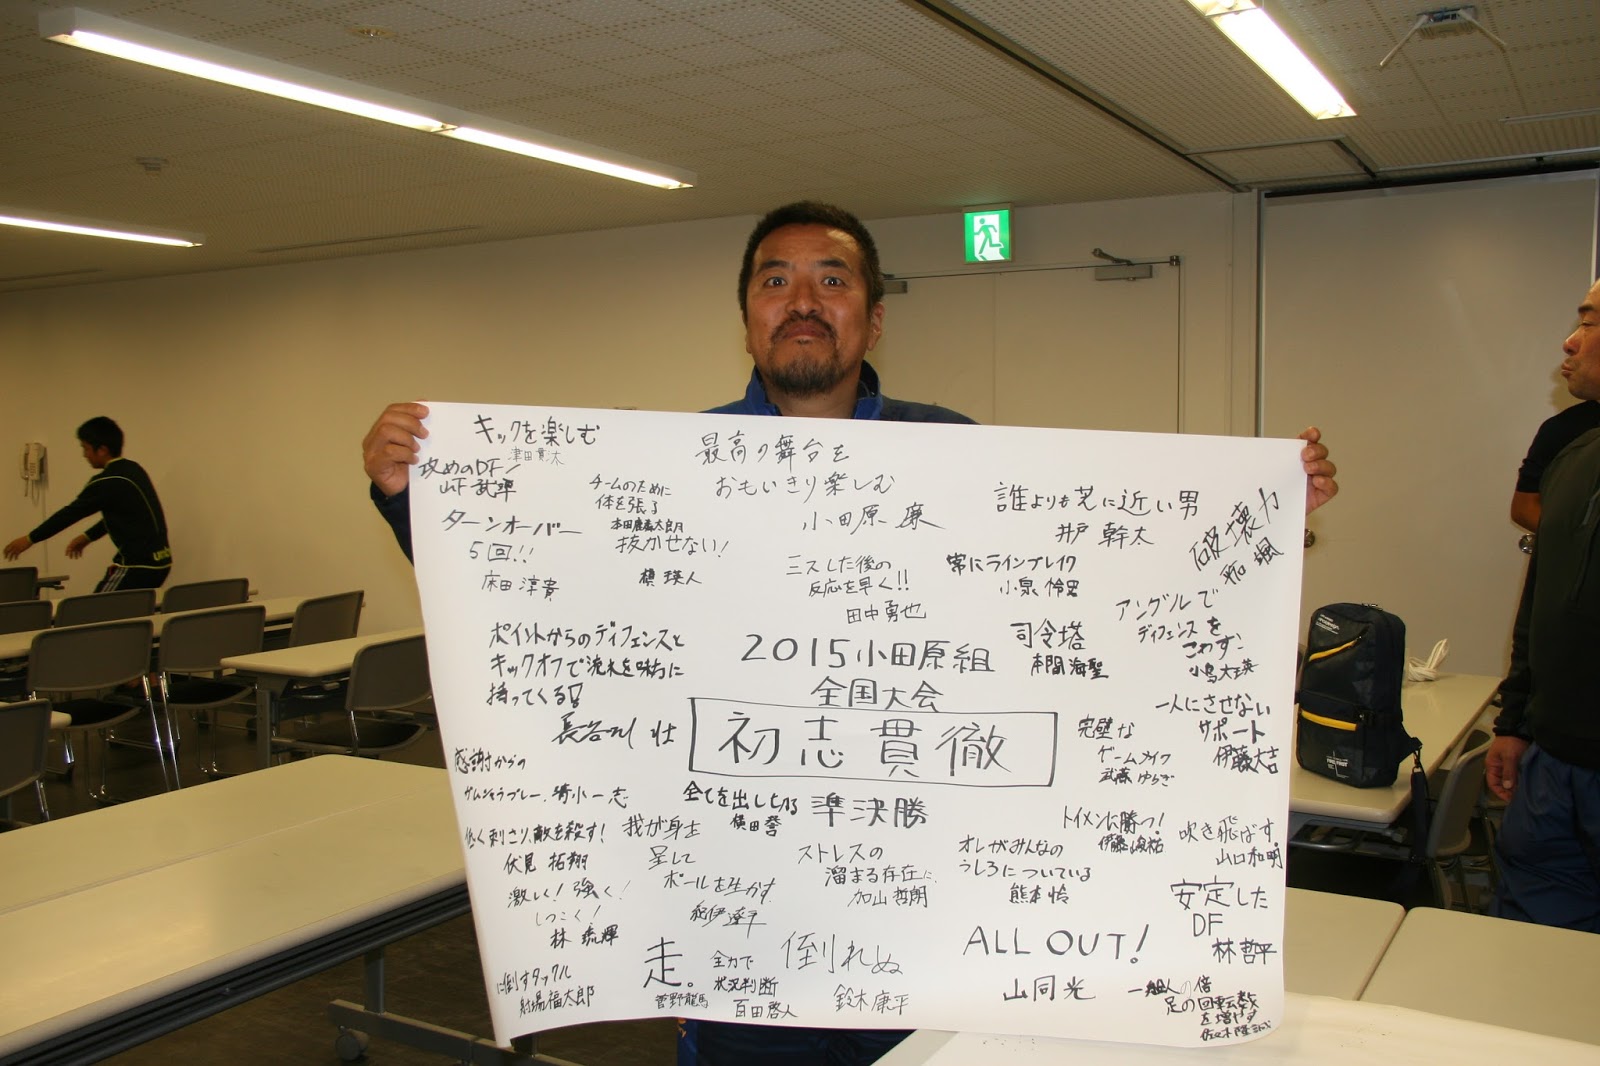 キックを楽しむ
津田貫太
攻めのDF!
山下武準
ターンオーバー
5回!!
床田淳貴
チームのために
体を張る
本田慶太郎
抜かせない!
槙瑛人
最高の舞台を
おもいきり楽しむ
小田原廉
ミスした後の
反応を早く!!
田中勇也
誰よりも芝に近い男
井戸幹太
常にラインブレイク
小泉怜男
破壊力
颯
アングルで
ディフェンスを
こわす
小島大瑛
ポイントからのディフェンスと
キックオフで流れを味方に
持ってくる!
長谷川壮
2015小田原組
全国大会
初志貫徹
準決勝
司令塔
本間海聖
完璧な
ゲームメイク
武藤ゆらぎ
一人にさせない
サポート
伊藤大吉
感謝からの
ガムシャラプレー
小一志
低く刺さり、敵を殺す!
伏見拓翔
激しく!強く!
しつこく!
林琉輝
に倒すタックル
射場福太郎
全てを出し切る
横田誉
我が身を
呈して
ボールを生かす
紀伊遼平
走。
菅野龍馬
全力で
状況判断
百田啓人
ストレスの
溜まる存在に
加山哲朗
倒れぬ
鈴木康平
オレがみんなの
うしろについている
熊本怜
トイメンに勝つ!
伊藤峻祐
吹き飛ばす。
山口和明
ALL OUT!
山同光
安定した
DF
林哲平
一般人の倍
足の回転数
を増やす
佐々木隆